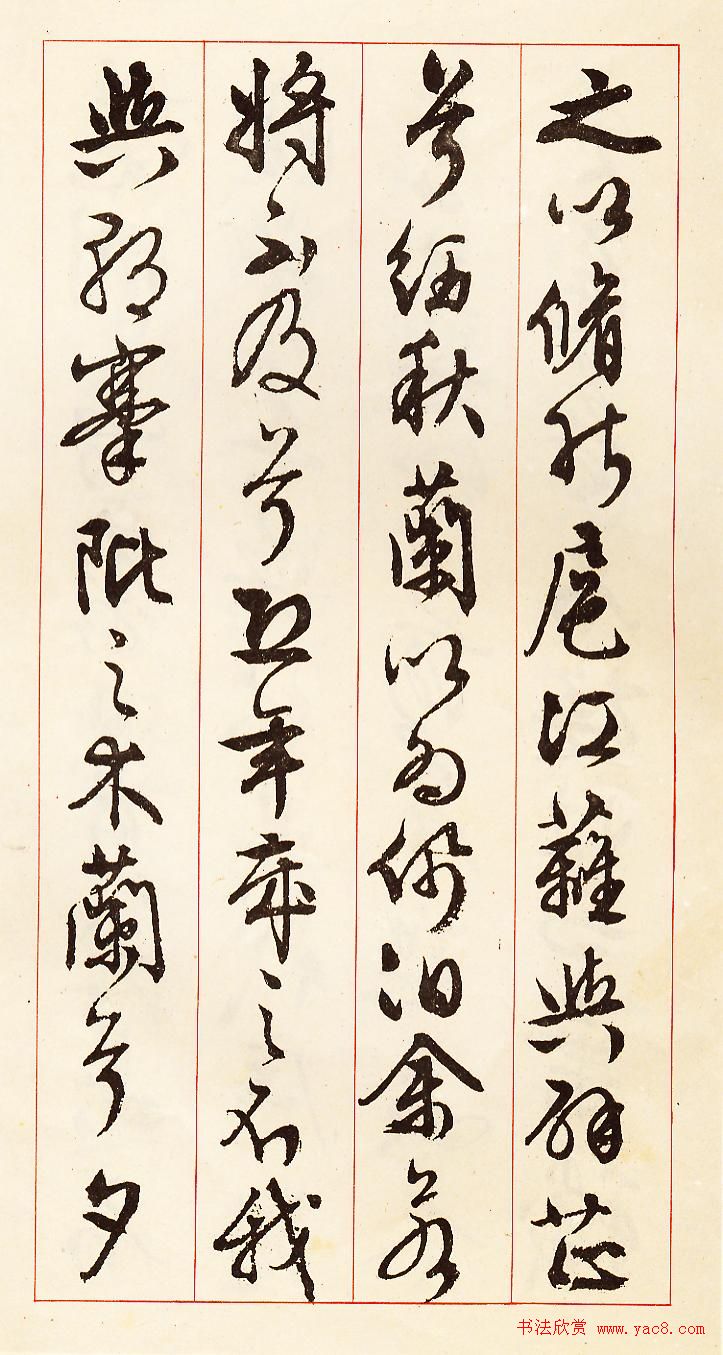 之以脩能扈江蘺與辟芷
兮紉秋蘭以為佩汩余若
將不及兮恐年歲之不我
與朝搴阰之木蘭兮夕
书法欣赏 www.yac8.com